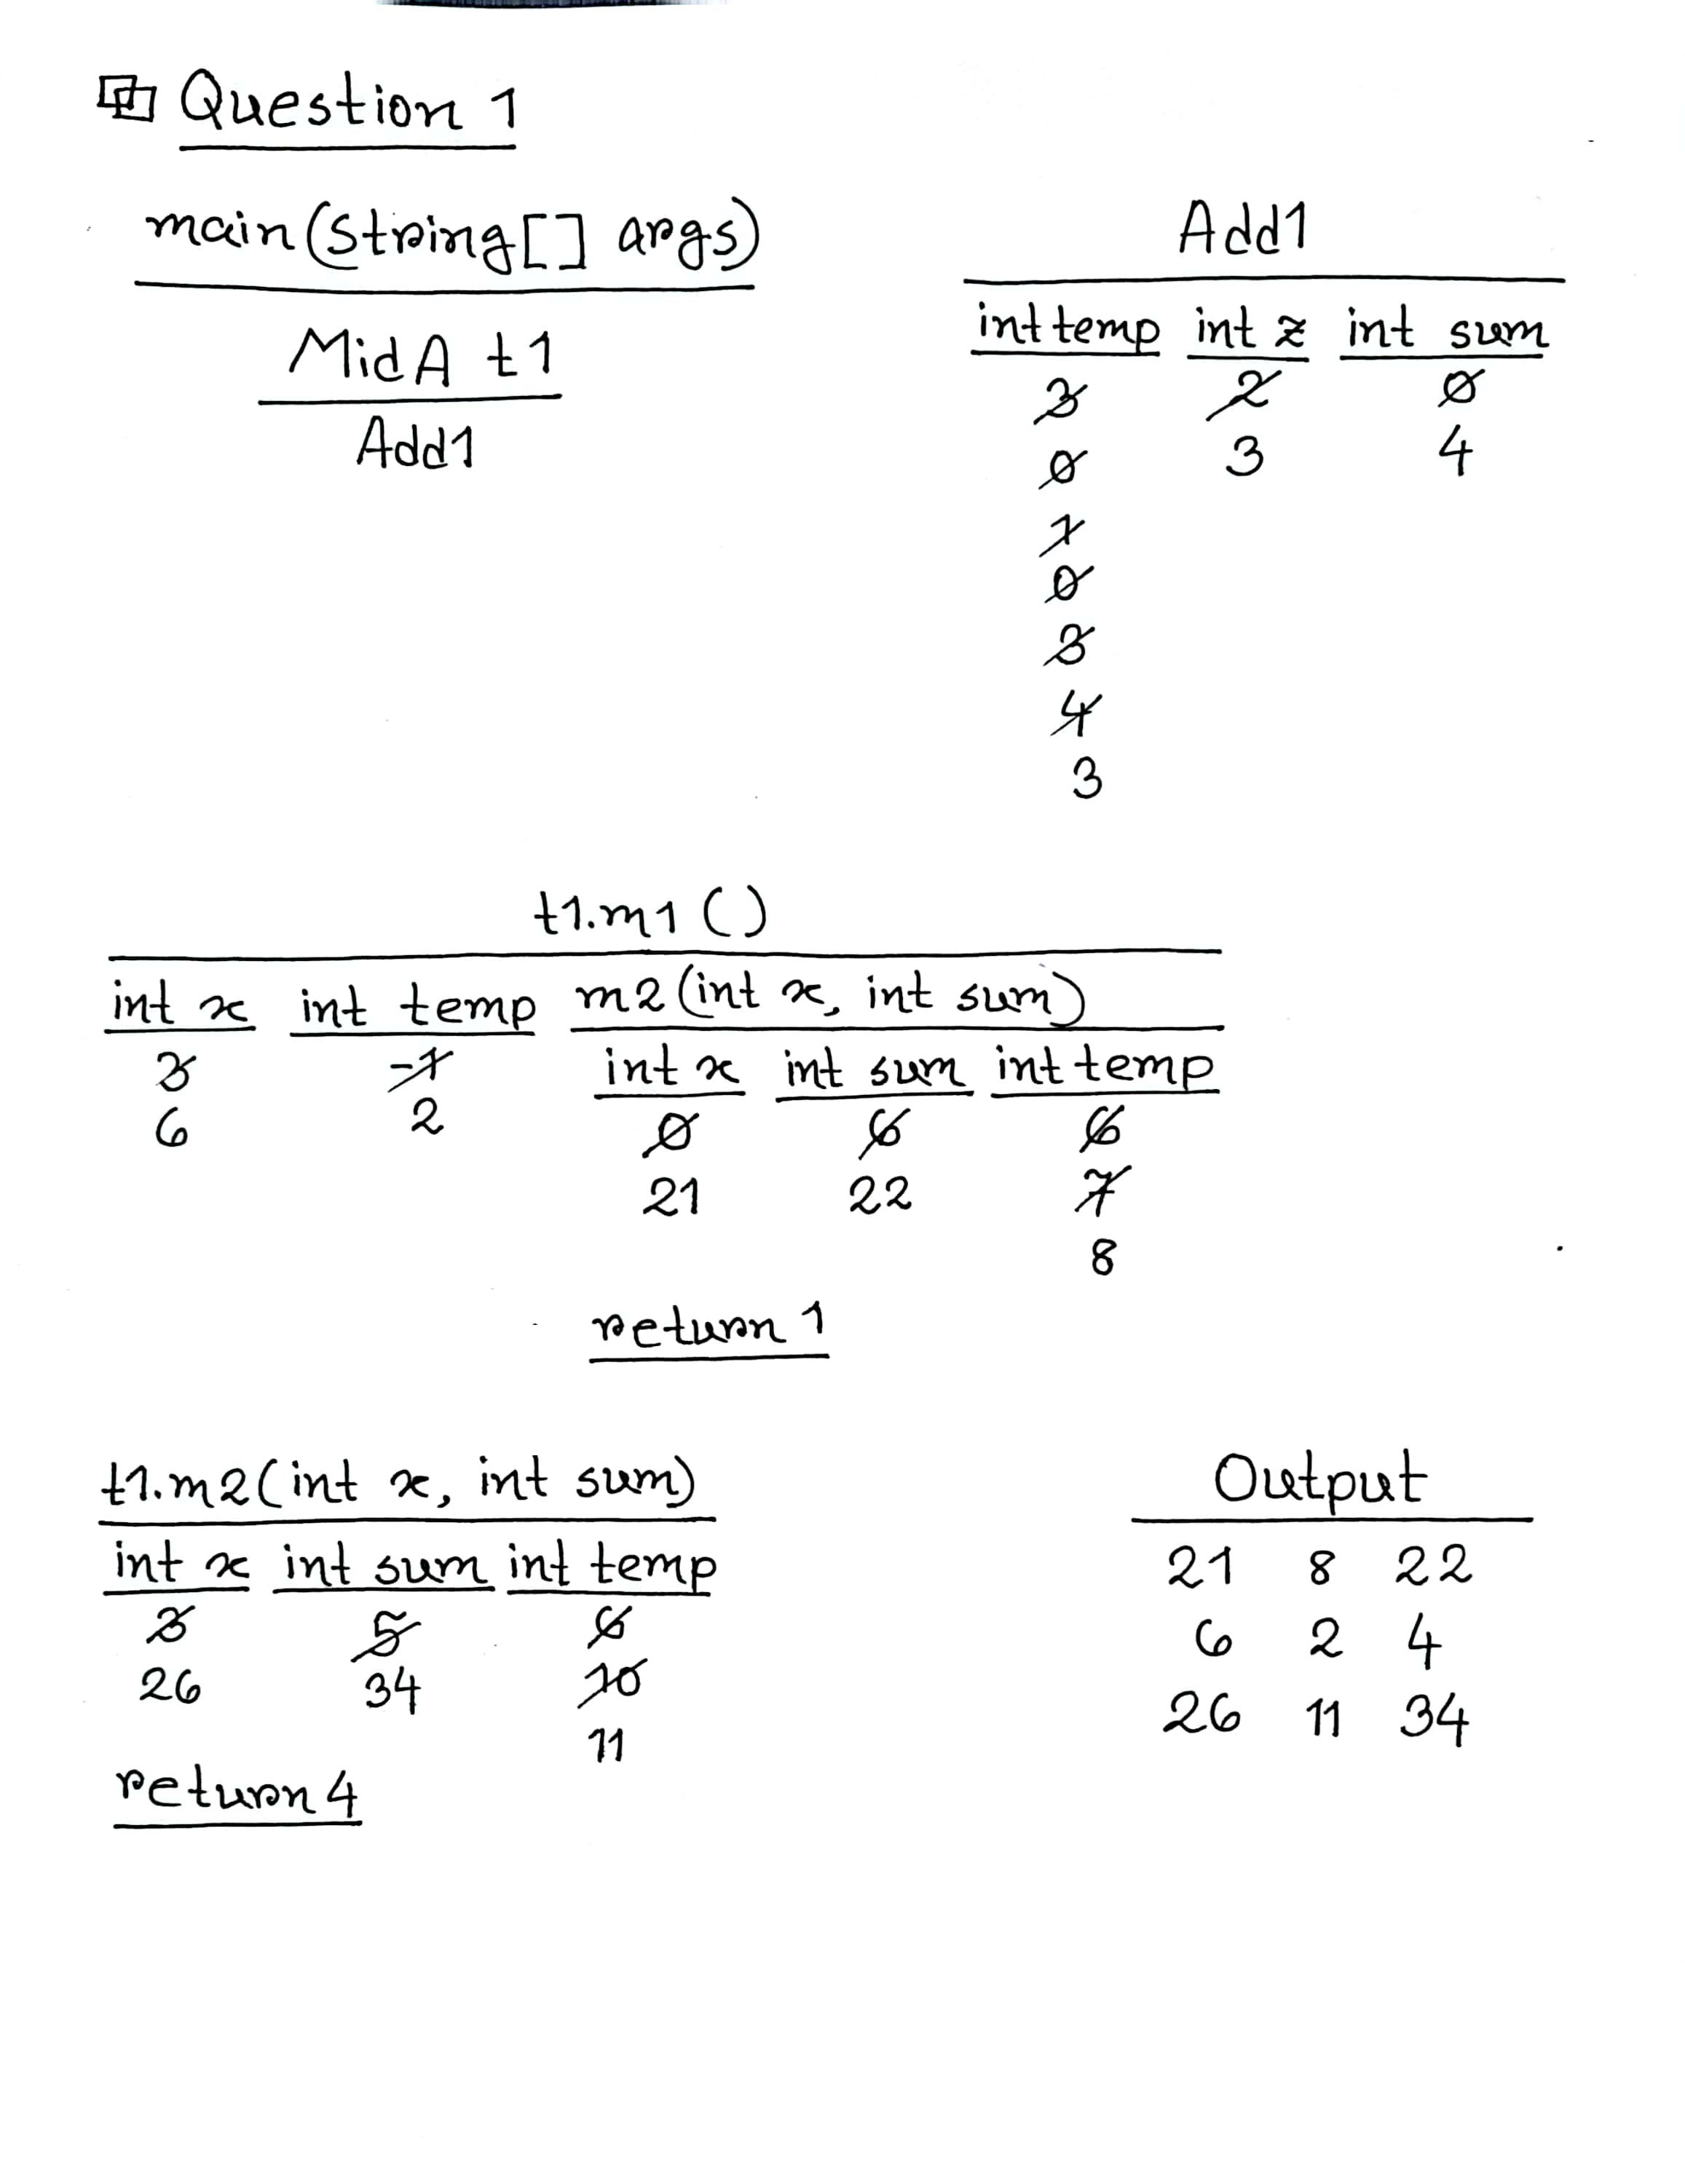 Question 1
main(String[] args)
MidA t1
Add1
Add1
int temp int z int sum
3 2 0
0 3 4
1
0
3
4
3
t1.m1 ()
int x int temp m2 (int x, int sum)
3 -1 int x int sum int temp
6 2 0 6 6
21 22 7
8
return 1
t1.m2(int x, int sum)
int x int sum int temp
3 5 6
26 34 10
11
return 4
Output
21 8 22
6 2 4
26 11 34